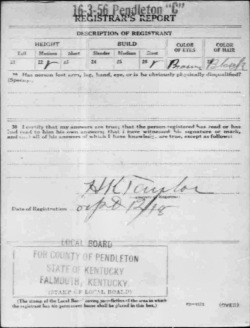 16-3-56 Pendleton "C"
REGISTRAR'S REPORT
DESCRIPTION OF REGISTRANT
HEIGHT BUILD COLOR OF EYES COLOR OF HAIR
Tall Medium Short Slender Medium Stout
Brown Black
29 Has person lost arm, leg, hand, eye, or is he obviously physically disqualified?
(Specify).
30 I certify that my answers are true; that the person registered has read or has
had read to him his own answers; that I have witnessed his signature or mark,
and that all of his answers of which I have knowledge are true, except as follows:
H K Taylor
Date of Registration
LOCAL BOARD
FOR COUNTY OF PENDLETON
STATE OF KENTUCKY
FALMOUTH, KENTUCKY
(STAMP OF LOCAL BOARD)
(The stamp of the Local Board having jurisdiction of the area in which
the registrant has his permanent home shall be placed in this box.)
(OVER)